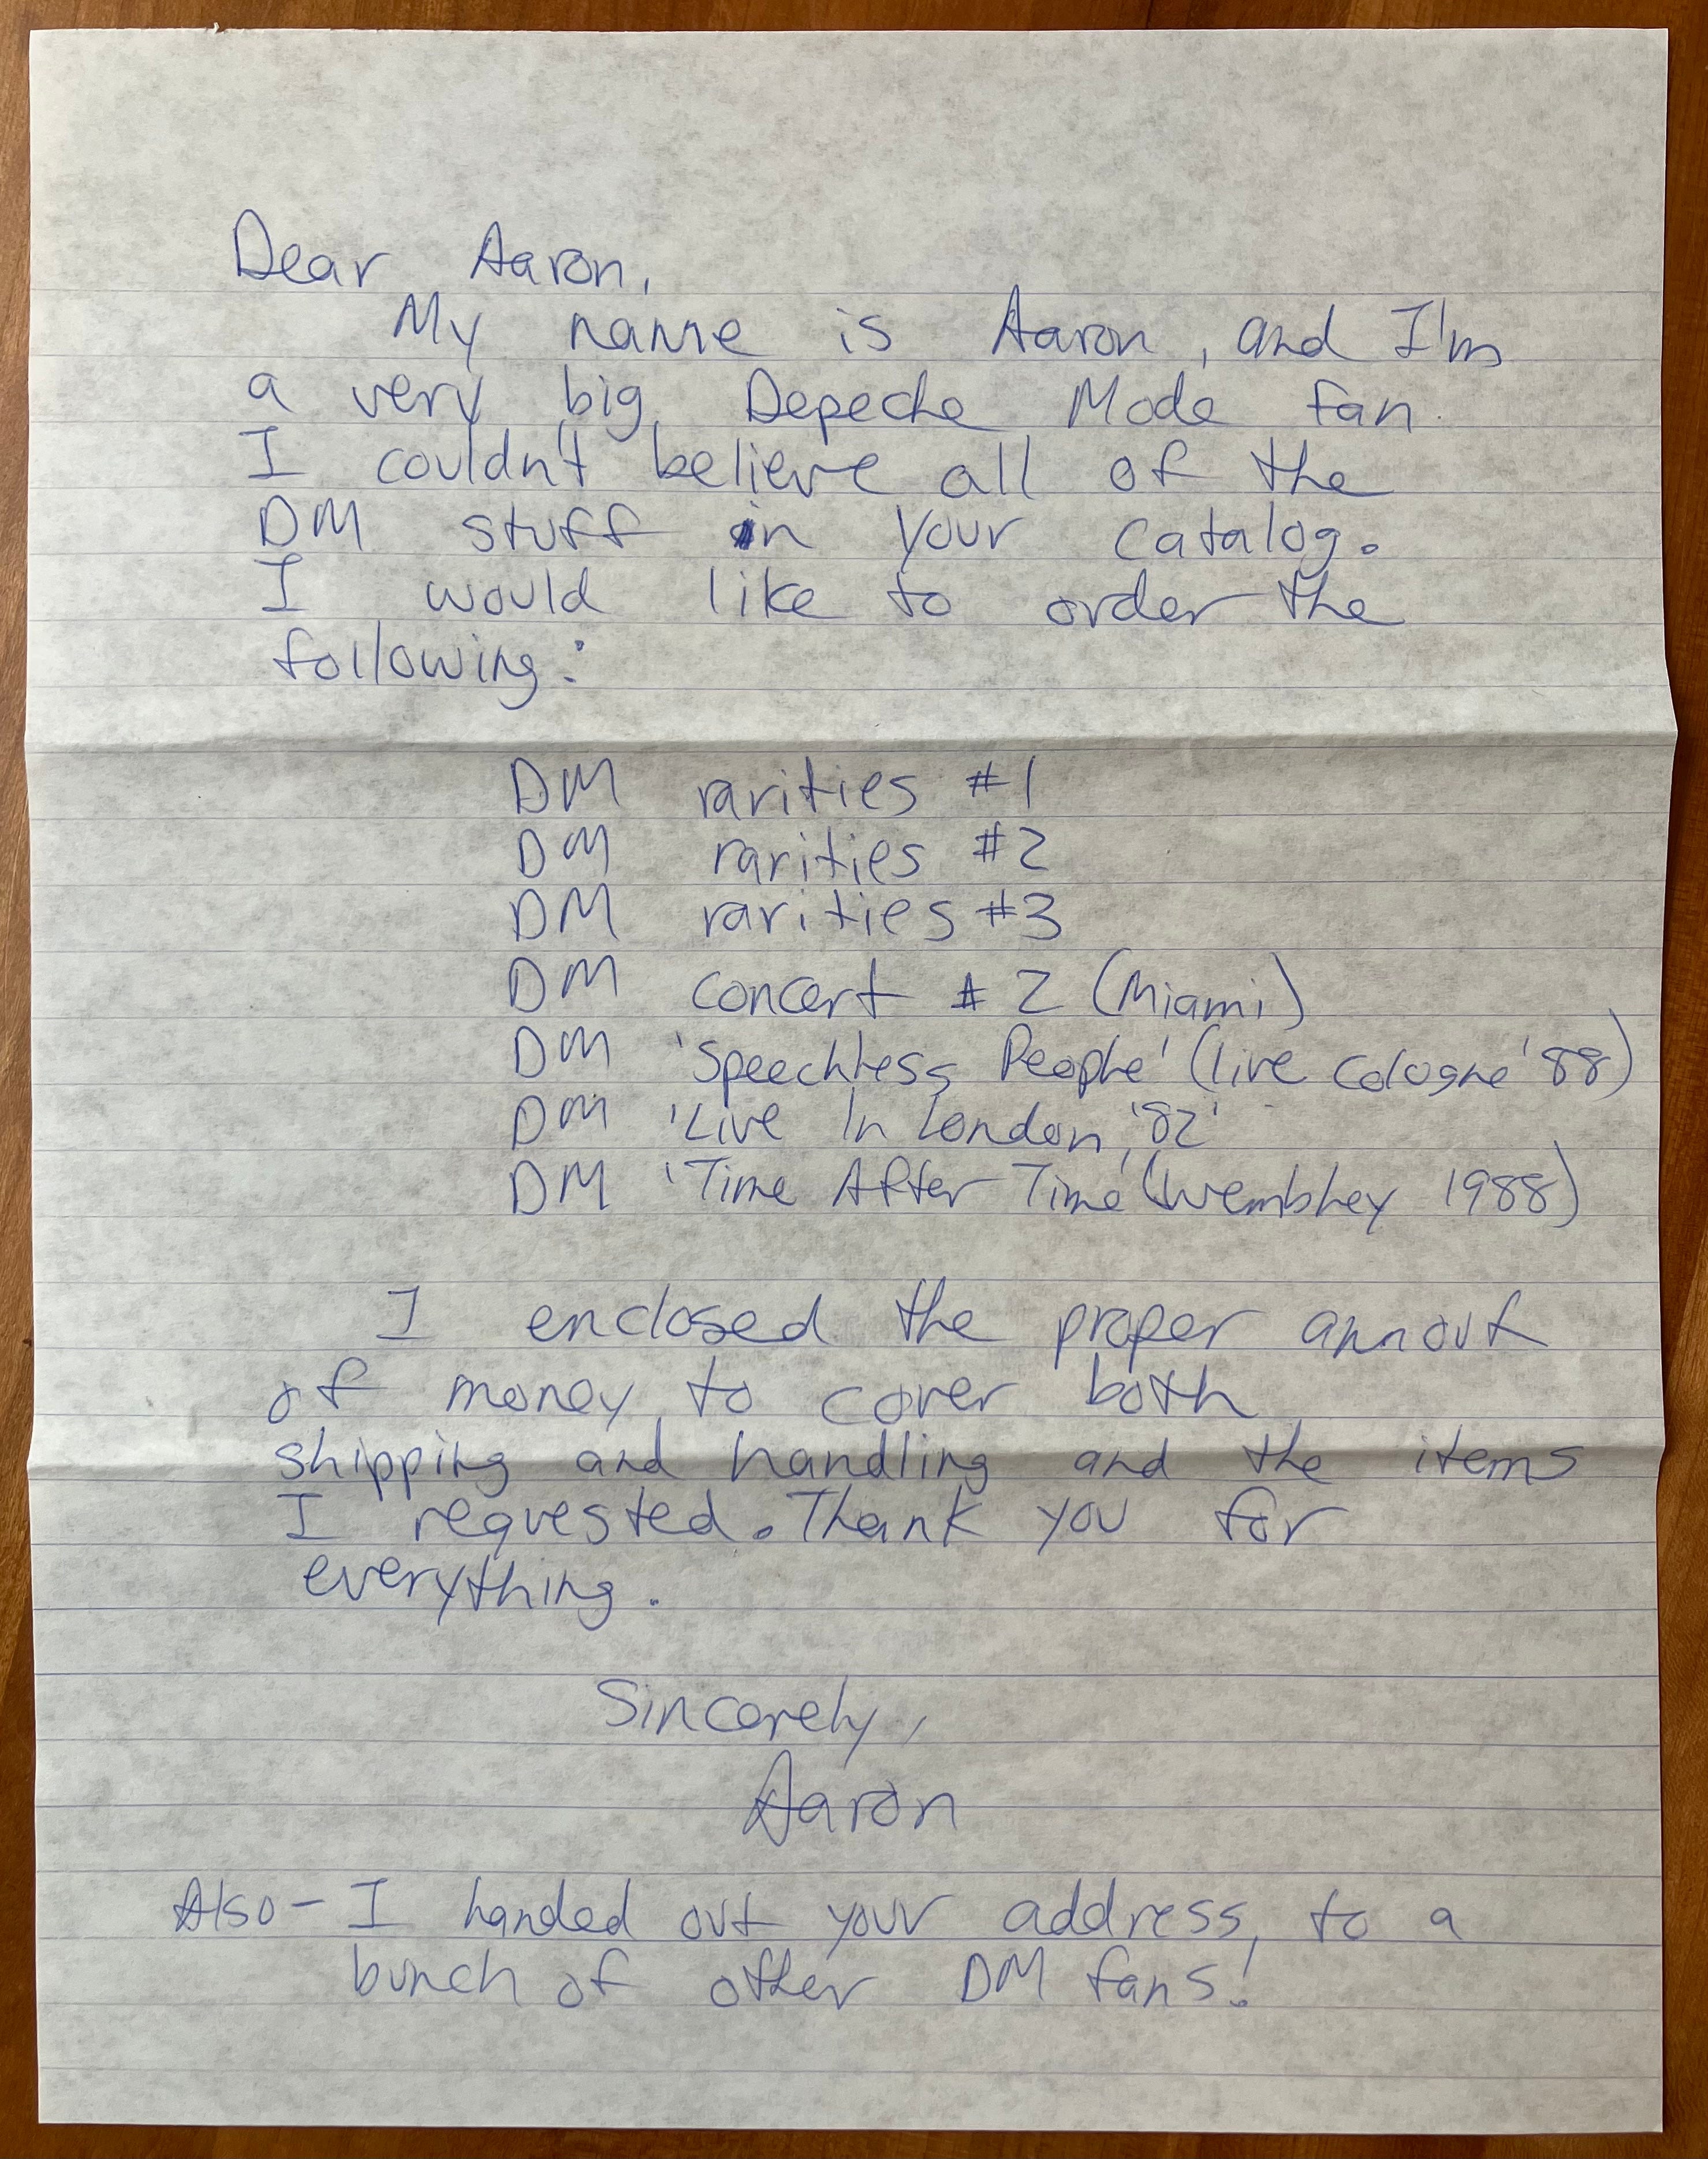 Dear Aaron,
My name is Aaron, and I'm
a very big Depeche Mode fan.
I couldn't believe all of the
DM stuff in your catalog.
I would like to order the
following:
DM rarities #1
DM rarities #2
DM rarities #3
DM concert #2 (Miami)
DM 'Speechless People' (live Cologne '88)
DM 'Live In London, '82'
DM 'Time After Time' (Wembley 1988)
I enclosed the proper amout
of money to cover both
shipping and handling and the items
I requested. Thank you for
everything.
Sincerely,
Aaron
Also - I handed out your address to a
bunch of other DM fans!